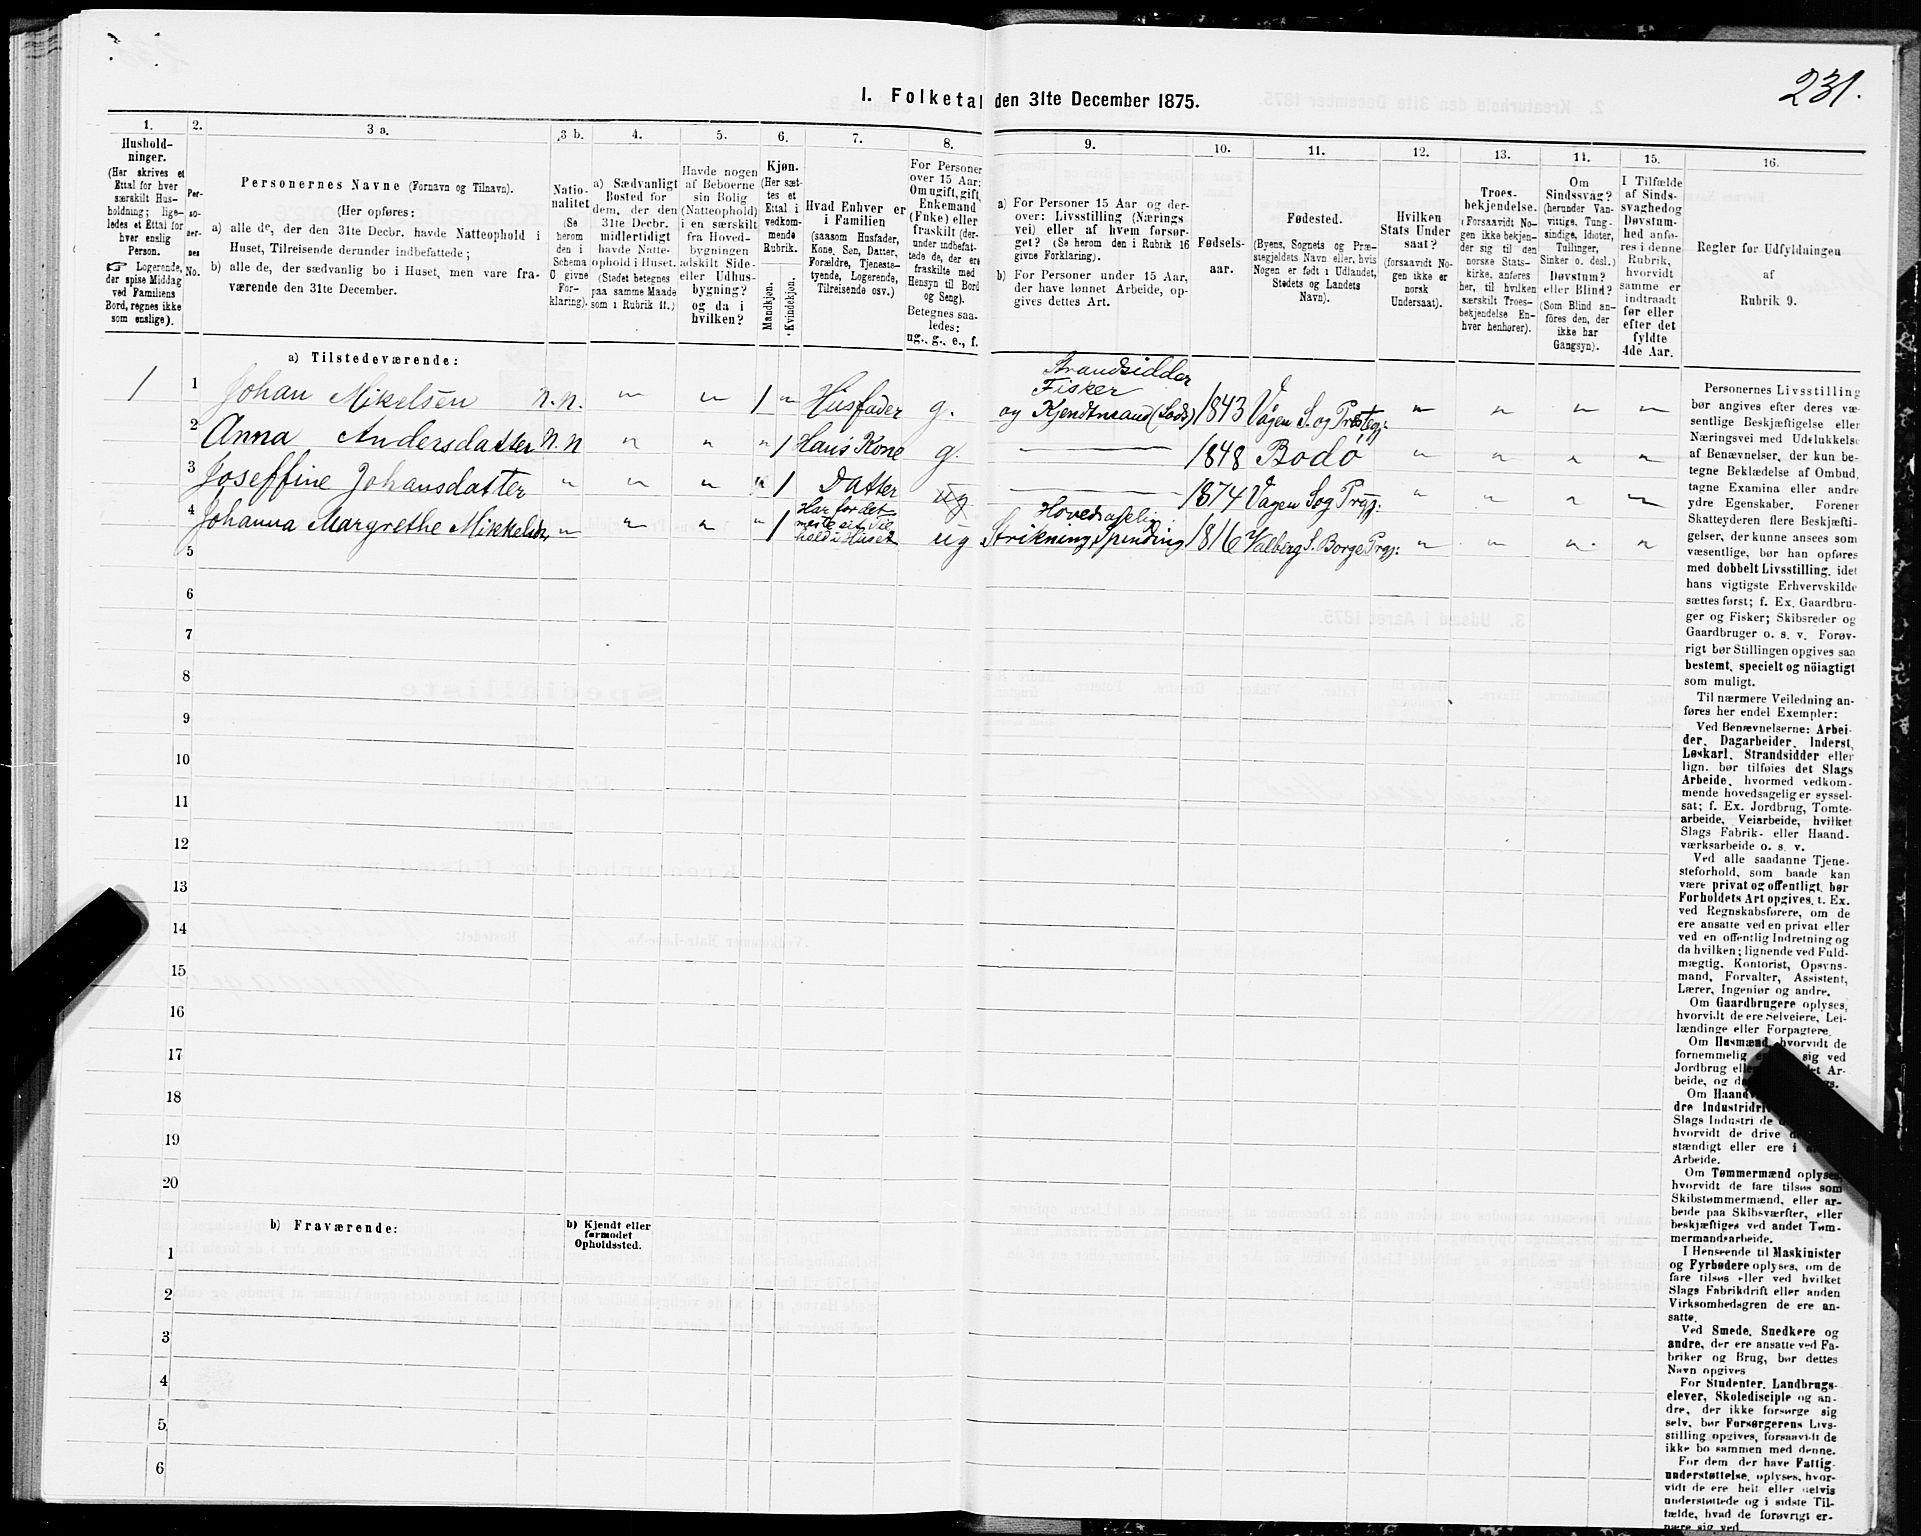 231.
I. Folketal den 31te December 1875.
1.
Hushold-
ninger.
(Her skrives et
Ettal for hver
særskilt Hus-
holdning; lige-
ledes et Ettal for
hver enslig
Person.
☞ Logerende,
der spise Middag
ved Familiens
Bord, regnes ikke
som enslige).
2.
Per-
so-
ner-
nes
No.
3 a.
Personernes Navne (Fornavn og Tilnavn).
(Her opføres:
a) alle de, der den 31te Decbr. havde Natteophold i
Huset, Tilreisende derunder indbefattede;
b) alle de, der sædvanlig bo i Huset, men vare fra-
værende den 31te December.
3 b.
Natio-
nalitet
(Se
herom
den i
Schema
O givne
For-
klaring).
4.
a) Sædvanligt
Bosted for
dem, der den
31te Decbr.
midlertidigt
havde Natte-
ophold i Huset.
(Stedet betegnes
paa samme Maade
som i Rubrik 11.)
5.
Havde nogen
af Beboerne
sin Bolig
(Natteophold)
i en særskilt
fra Hoved-
bygningen
adskilt Side-
eller Udhus-
bygning?
og da i
hvilken?
6.
Kjøn.
(Her sæt-
tes et
Ettal i
vedkom-
mende
Rubrik.
Mandkjøn.
Kvindekjøn.
7.
Hvad Enhver er
i Familien
(saasom Husfader,
Kone, Søn, Datter,
Forældre, Tjeneste-
tyende, Logerende,
Tilreisende osv.)
8.
For Personer
over 15 Aar:
Om ugift, gift,
Enkemand
(Enke) eller
fraskilt (der-
under indbefat-
tede de, der ere
fraskilte med
Hensyn til Bord
og Seng).
Betegnes saa-
ledes:
ug., g., e., f.
9.
a) For Personer 15 Aar og der-
over: Livsstilling (Nærings
vei) eller af hvem forsør-
get? (Se herom den i Rubrik 16
givne Forklaring).
b) For Personer under 15 Aar,
der have lønnet Arbeide, op-
gives dettes Art.
10.
Fødsels-
aar.
11.
Fødested.
(Byens, Sognets og Præ-
stegjeldets Navn eller, hvis
Nogen er født i Udlandet,
Stedets og Landets
Navn).
12.
Hvilken
Stats Under
saat?
(forsaavidt No-
gen ikke er
norsk
Undersaat).
13.
Troes-
bekjendelse.
(Forsaavidt No-
gen ikke bekjen-
der sig til den
norske Stats-
kirke, anføres
her, til hvilken
særskilt Troes-
bekjendelse En-
hver henhører).
14.
Om
Sindssvag?
(herunder Van-
vittige, Tung-
sindige, Idioter,
Tullinger,
Sinker o. desl.)
Døvstum?
eller Blind?
(Som Blind an-
føres den, der
ikke har
Gangsyn).
15.
I Tilfælde
af Sinds-
svaghed og
Døvstum-
hed anfø-
res i denne
Rubrik,
hvorvidt
samme er
indtraadt
før eller
efter det
fyldte
4de Aar.
16.
Regler for Udfyldningen
af
Rubrik 9.
a) Tilstedeværende:
1 1 Johan Mikelsen n.n. " " 1 " Husfader g. Strandsidder
Fisker
og Kjendtmand (Lods) 1843 Vågen S. og Præstegj: " " " "
2 Anna Andersdatter N.n " " " 1 Hans Kone g. — 1848 Bodø " " " "
3 Joseffine Johansdatter " " " " 1 Datter ug — 1874 Vagen Sog Prgj: " " " "
4 Johanna Margrethe Mikkelsdr " " " " 1 Har for det
meste sit Til
hold i Huset ug Hovedsagelig
Strikning, Spinding 1816 Valberg S. Borge Prgj: " " " "
5
6
7
8
9
10
11
12
13
14
15
16
17
18
19
20
b) Fraværende:
b) Kjendt eller
formodet
Opholdssted.
1
2
3
4
5
6
Personernes Livsstilling
bør angives efter deres væ-
sentlige Beskjæftigelse eller
Næringsvei med Udelukkelse
af Benævnelser, der kun be-
tegne Beklædelse af Ombud,
tagne Examina eller andre
ydre Egenskaber. Forener
Skatteyderen flere Beskjæfti-
gelser, der kunne ansees som
væsentlige, bør han opføres
med dobbelt Livsstilling, idet
hans vigtigste Erhvervskilde
sættes først; f. Ex. Gaardbru-
ger og Fisker; Skibsreder og
Gaardbruger o. s. v. Forøv-
rigt bør Stillingen opgives saa
bestemt, specielt og nöiagtigt
som muligt.
Til nærmere Veiledning an-
føres her endel Exempler:
Ved Benævnelserne: Arbei-
der, Dagarbeider, Inderst,
Løskarl, Strandsidder eller
lign. bør tilføies det Slags
Arbeide, hvormed vedkom-
mende hovedsagelig er syssel-
sat; f. Ex. Jordbrug, Tomte-
arbeide, Veiarbeide, hvilket
Slags Fabrik- eller Haand-
værksarbeide o. s. v.
Ved alle saadanne Tjene-
steforhold, som baade kan
være privat og offentligt, bør
Forholdets Art opgives, t. Ex.
ved Regnskabsførere, om de
ere ansatte ved en privat eller
ved en offentlig Indretning og
da hvilken; lignende ved Fuld-
mægtig, Kontorist, Opsyns-
mand, Forvalter, Assistent,
Lærer, Ingeniør og andre.
Om Gaardbrugere oplyses,
hvorvidt de ere Selveiere, Lei-
lændinge eller Forpagtere.
Om Husmænd, hvorvidt de
fornemmelig sig ved
Jordbrug eller Ar-
beide, og
Om Haand
dre Industridri
Slags Industri de
hvorvidt de drive
stændigt eller ere i
Arbeide.
Om Tømmermænd oplyses,
hvorvidt de fare tilsøs som
Skibstømmermænd, eller ar-
beide paa Skibsværfter, eller
beskjæftiges ved andet Tøm-
mermandsarbeide.
I Henseende til Maskinister
og Fyrbødere oplyses, om de
fare tilsøs eller ved hvilket
Slags Fabrikdrift eller anden
Virksomhedsgren de ere an-
satte.
Ved Smede, Snedkere og
andre, der ere ansatte ved Fa-
briker og Brug, bør dettes
Navn opgives
For Studenter, Landbrugs-
elever, Skoledisciple og an-
dre, der ikke forsørge sig
selv, bør Forsørgerens Livs-
stilling opgives, forsaavidt de
ikke bo sammen med denne.
For dem der have Fattig-
understøttelse, oplyses, hvor-
vidt de ere helt eller delvis
understøttede og i sidste Til-
fælde, hvad de forøvrigt er-
nære sig ved